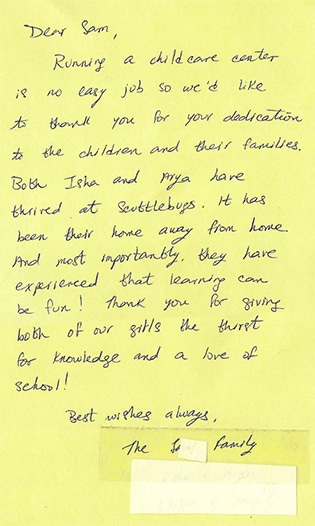 Dear Sam,
Running a childcare center
is no easy job so we'd like
to thank you for your dedication
to the children and their families.
Both Isha and Arya have
thrived at Scuttlebugs. It has
been their home away from home
And most importantly, they have
experienced that learning can
be fun! Thank you for giving
both of our girls the thirst
for knowledge and a love of
school!
Best wishes always,
The Family